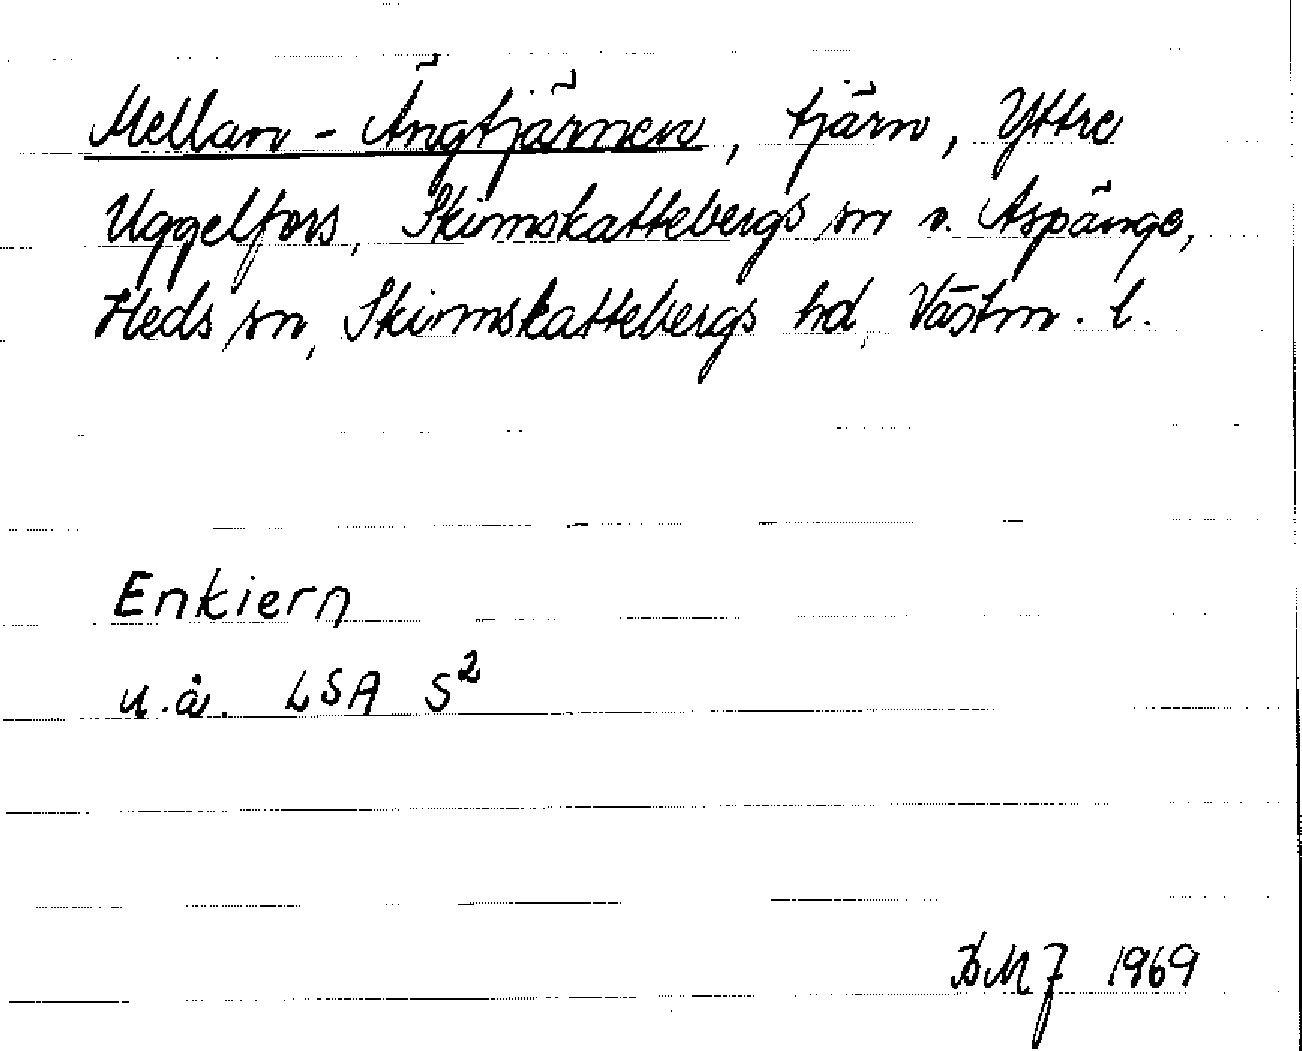 Mellan-Ängtjärnen, tjärn, Yttre
Uggelfors, Skinnskattebergs sn v. Aspänge,
Heds sn, Skinnskattebergs hd, Västm. l.
Enkiern
u.å. LSA S²
BMJ 1969